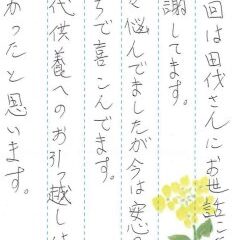 回は田伐さんにお世話に
謝してます。
々悩んでましたが今は安心
ちで喜こんでます。
代供養へのお引っ越しは
かったと思います。